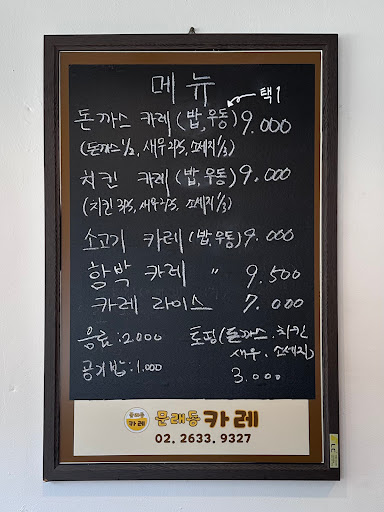 메뉴
택1
돈까스 카레 (밥, 우동) 9.000
(돈까스 1/2, 새우 2PS, 소세지 1/3)
치킨 카레 (밥, 우동) 9.000
(치킨 3PS, 새우 2PS, 소세지 1/3)
소고기 카레 (밥, 우동) 9.000
함박 카레 " 9.500
카레 라이스 7.000
음료 : 2.000
공기밥 : 1.000
토핑 (돈까스. 치킨
새우. 소세지)
3.000
문래동 카레
문래동 카레
02. 2633. 9327